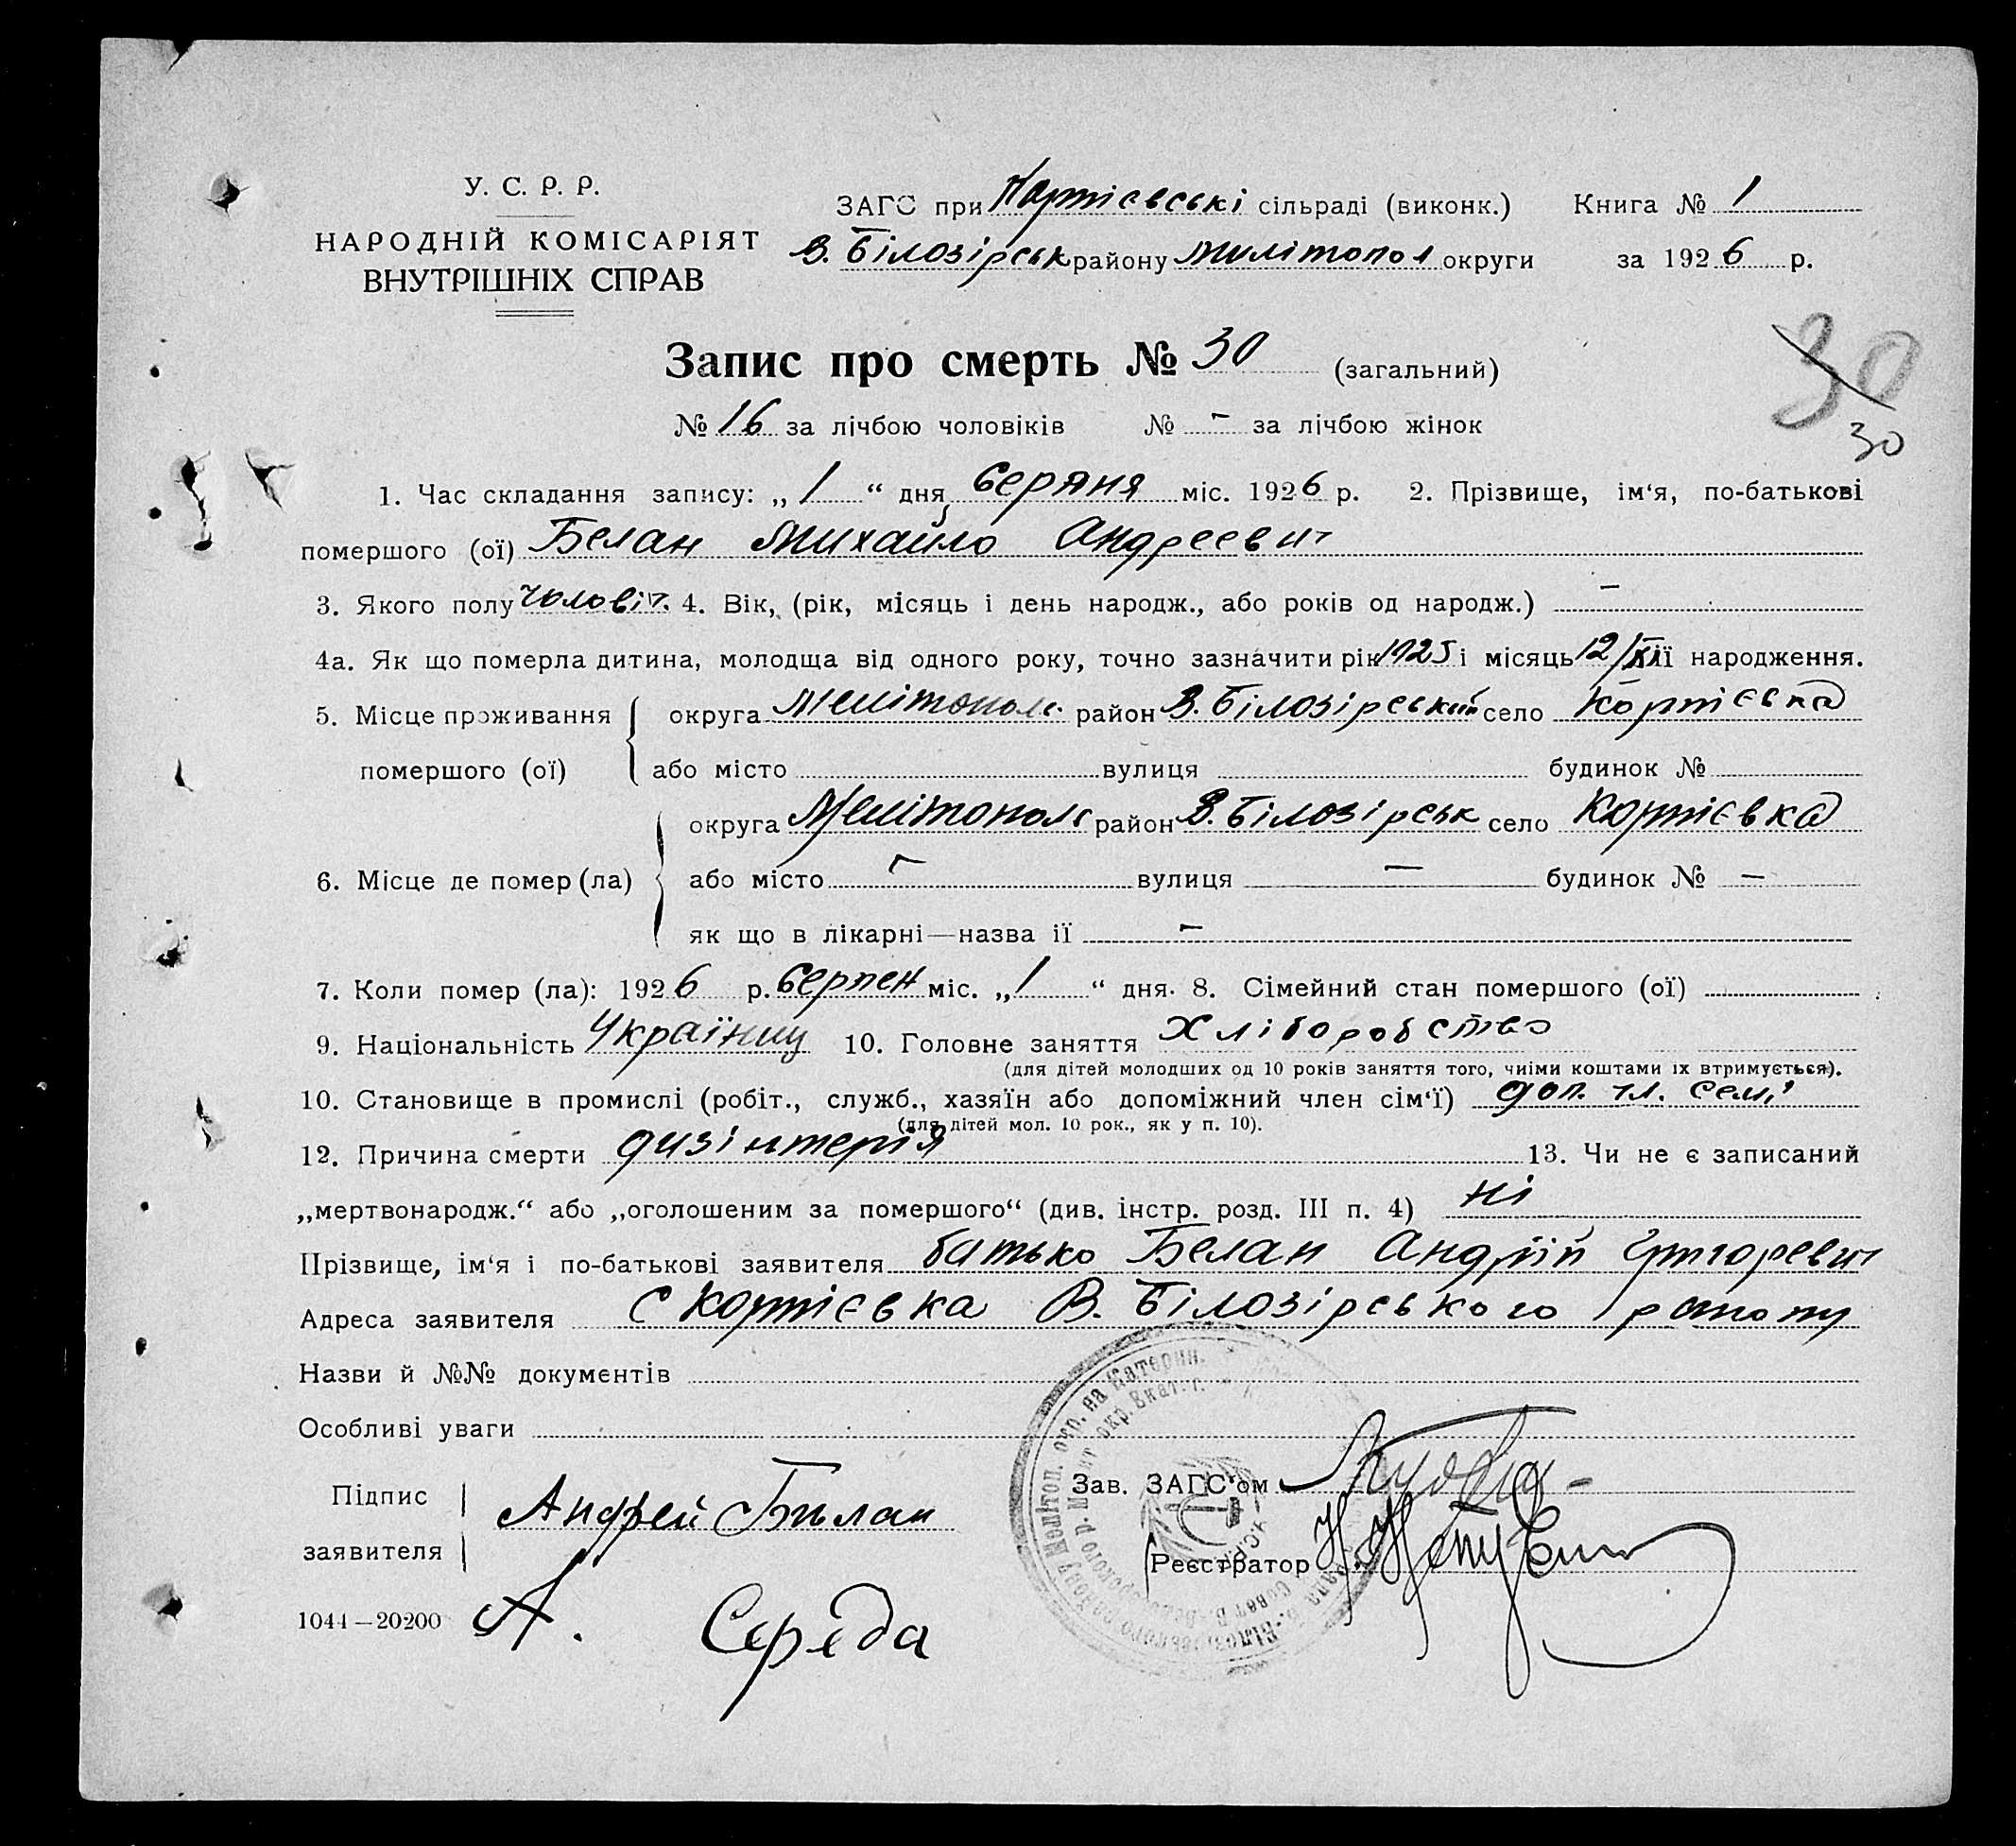 У. С. Р. Р.
НАРОДНІЙ КОМІСАРІЯТ
ВНУТРІШНІХ СПРАВ
ЗАГС при Кортієвські сільраді (виконк.) Книга № 1
В. Білозірськ району Милітопол округи за 1926 р.
Запис про смерть № 30 (загальний)
30
30
№ 16 за лічбою чоловіків № - за лічбою жінок
1. Час складання запису: „ 1 “ дня Серпня міс. 1926 р. 2. Прізвище, ім‘я, по-батькові
помершого (ої) Белан Михайло Андреевич
3. Якого полу чоловіч. 4. Вік, (рік, місяць і день народж., або років од народж.) —
4а. Як що померла дитина, молодща від одного року, точно зазначити рік 1925 і місяць 12/XII її народження.
5. Місце проживання округа Мелітополь район В. Білозірський село Кортієвка
помершого (ої) або місто вулиця будинок №
округа Мелітополь район В. Білозірськ село Кортієвка
6. Місце де помер (ла) або місто — вулиця — будинок № —
як що в лікарні—назва ії —
7. Коли помер (ла): 1926 р. Серпен міс. „ 1 “ дня. 8. Сімейний стан помершого (ої)
9. Національність Українец 10. Головне заняття Хліборобство
(для дітей молодших од 10 років заняття того, чиіми коштами їх втримується).
10. Становище в промислі (робіт., служб., хазяїн або допоміжний член сім‘ї) доп. чл. семі
(для дітей мол. 10 рок., як у п. 10).
12. Причина смерти дизінтерія 13. Чи не є записаний
„мертвонародж.“ або „оголошеним за помершого“ (див. інстр. розд. III п. 4) ні
Прізвище, ім‘я і по-батькові заявителя батько Белан Андрій Григоревич
Адреса заявителя с Кортієвка В. Білозірського району
Назви й №№ документів
Особливі уваги
Підпис
заявителя
Андрей Билан
Зав. ЗАГС‘ом
Реєстратор
1044—20200
А. Середа